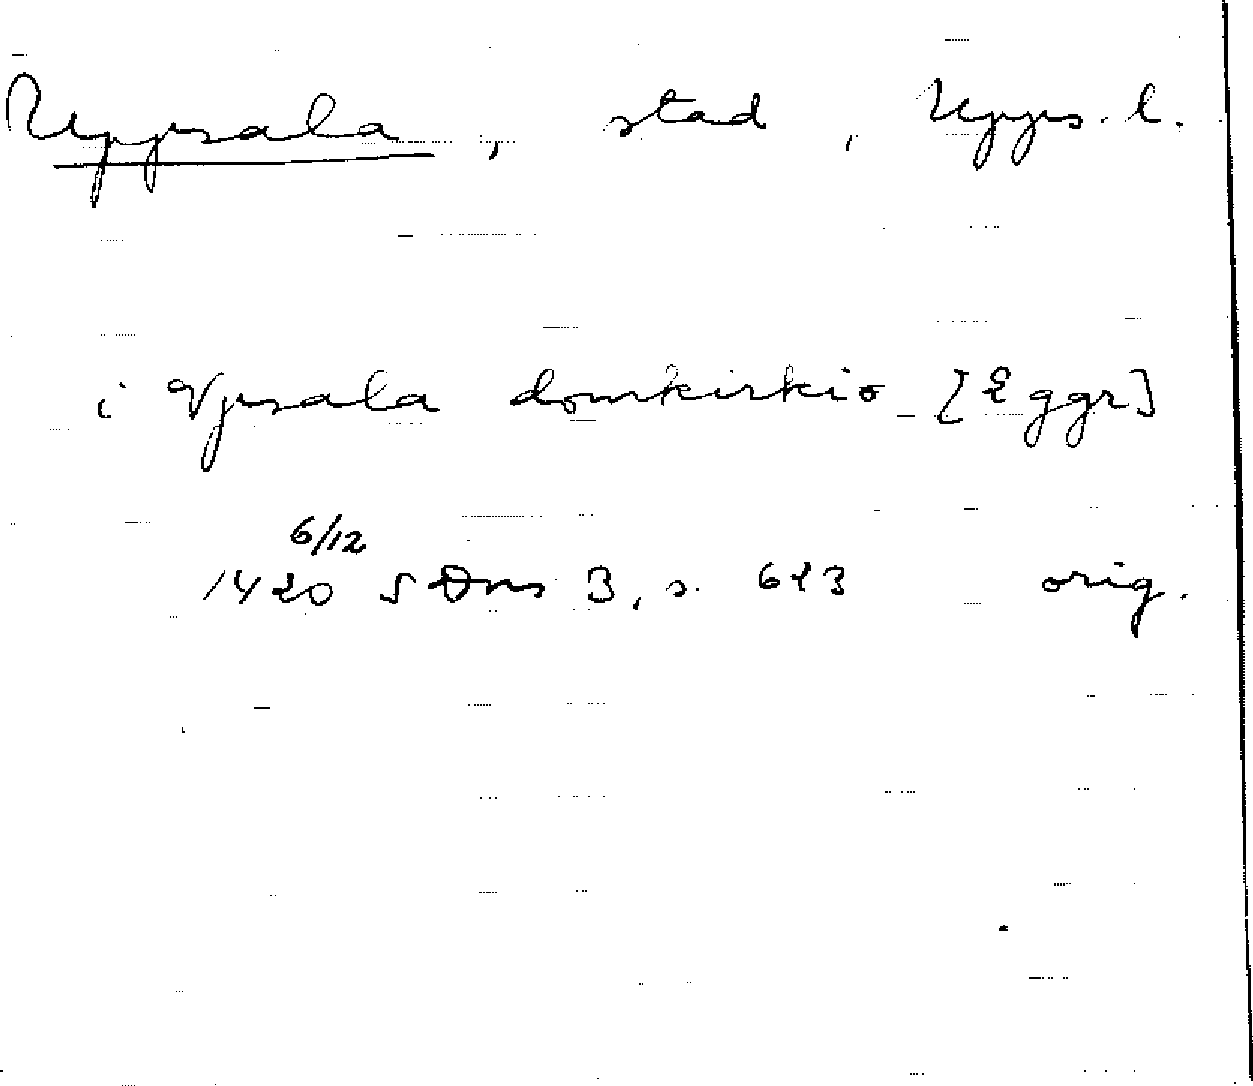 Uppsala, stad, Upps. l.
i Vpsala domkirkio [Eggr]
6/12
1420 SDns 3, s. 623 orig.